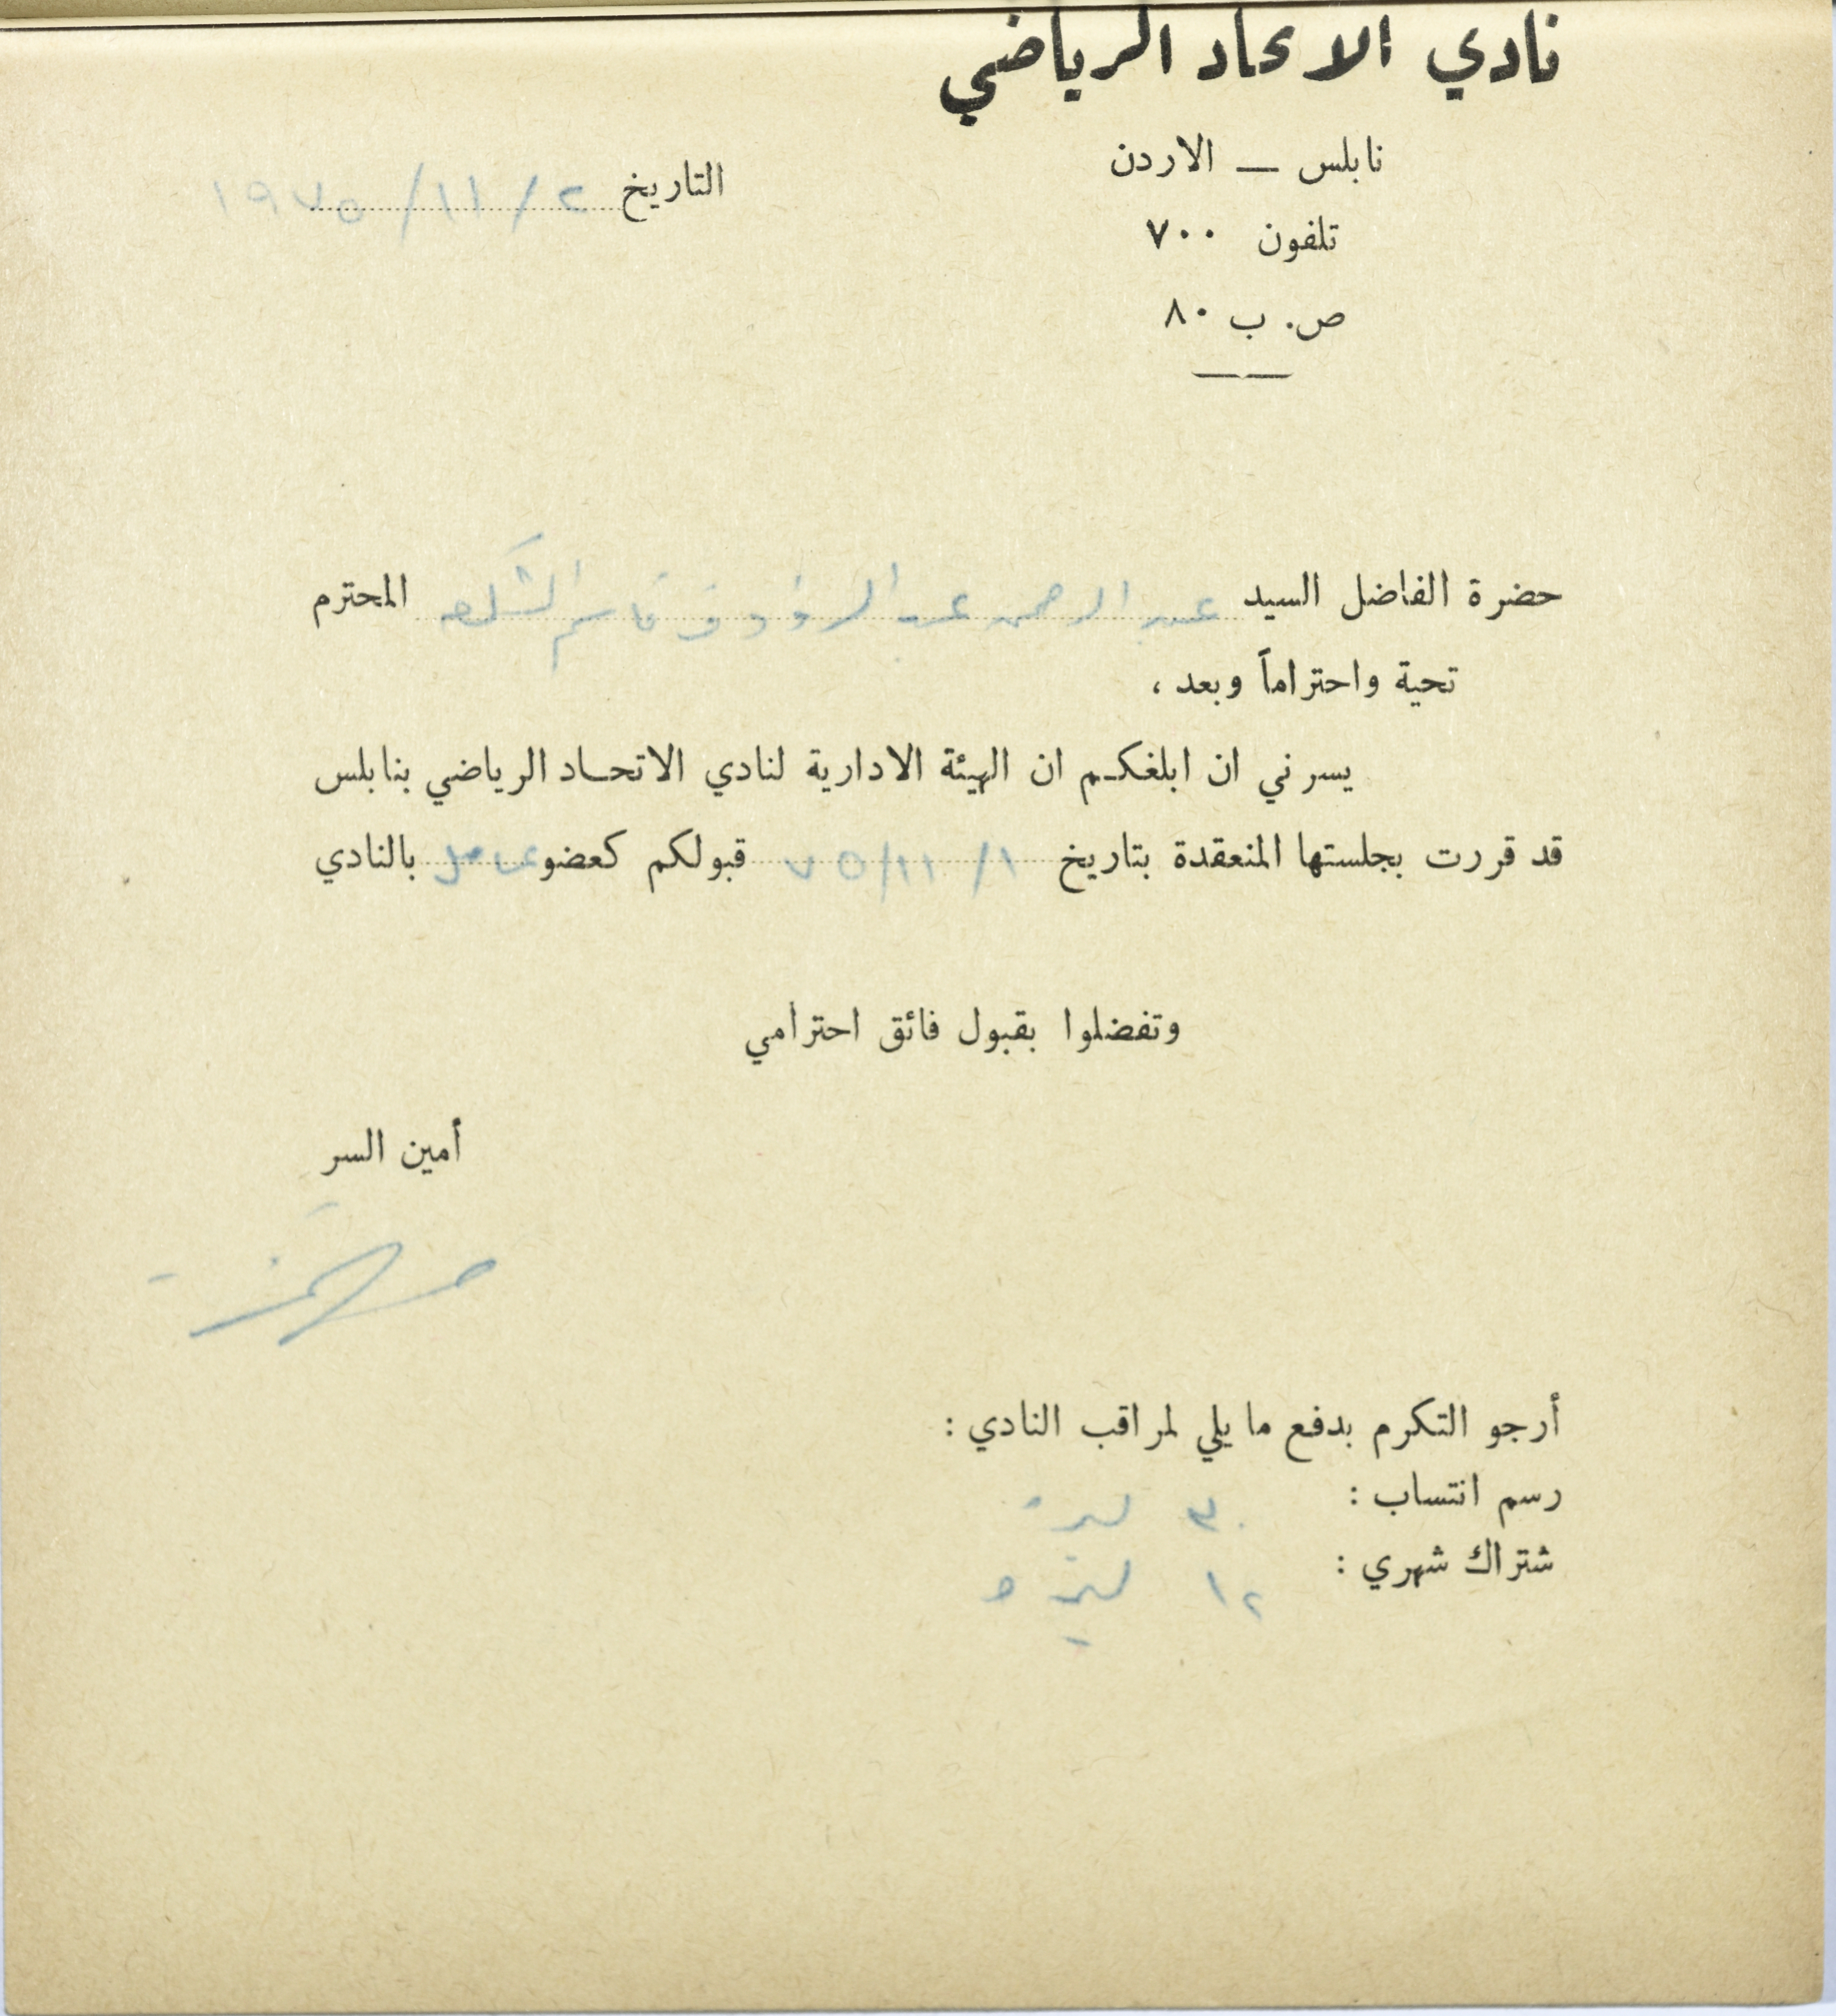 نادي الاتحاد الرياضي
نابلس — الاردن
التاريخ ٢ / ١١ / ١٩٧٥
تلفون ٧٠٠
ص. ب ٨٠
حضرة الفاضل السيد عبد الرحمن عبد الرؤوف قاسم الشكعه المحترم
تحية واحتراماً وبعد ،
يسرني ان ابلغكم ان الهيئة الادارية لنادي الاتحاد الرياضي بنابلس
قد قررت بجلستها المنعقدة بتاريخ ١ / ١١ / ٧٥ قبولكم كعضو عامل بالنادي
وتفضلوا بقبول فائق احترامي
أمين السر
أرجو التكرم بدفع ما يلي لمراقب النادي :
رسم انتساب : ٣٠ ليرة
شتراك شهري : ١٢ ليرة